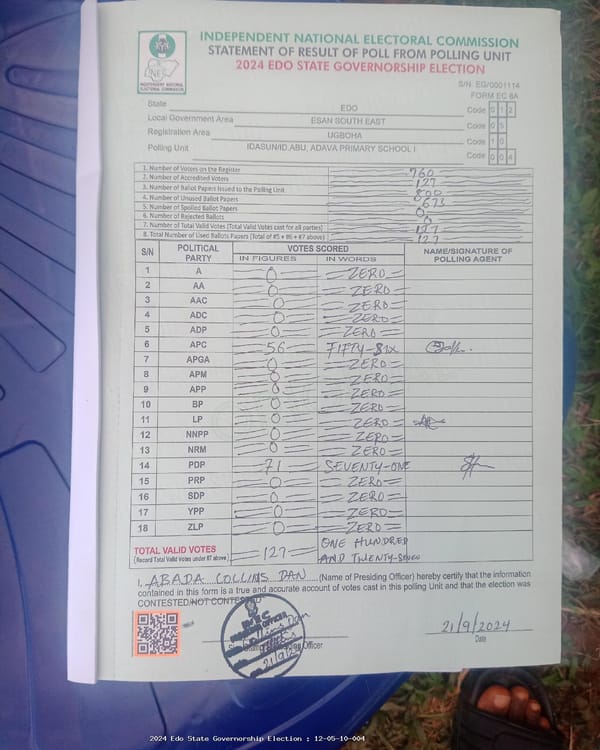 INDEPENDENT NATIONAL ELECTORAL COMMISSION
STATEMENT OF RESULT OF POLL FROM POLLING UNIT
2024 EDO STATE GOVERNORSHIP ELECTION
INEC
INDEPENDENT NATIONAL ELECTORAL COMMISSION
S/N: EG/0001114
FORM EC 8A
State EDO Code 0 1 2
Local Government Area ESAN SOUTH EAST Code 0 5
Registration Area UGBOHA Code 1 0
Polling Unit IDASUN/ID,ABU, ADAVA PRIMARY SCHOOL I Code 0 0 4
1. Number of Voters on the Register 760
2. Number of Accredited Voters 127
3. Number of Ballot Papers Issued to the Polling Unit 800
4. Number of Unused Ballot Papers 673
5. Number of Spoiled Ballot Papers 0
6. Number of Rejected Ballots 0
7. Number of Total Valid Votes (Total Valid Votes cast for all parties) 127
8. Total Number of Used Ballots Papers (Total of #5 + #6 + #7 above) 127
S/N POLITICAL PARTY VOTES SCORED NAME/SIGNATURE OF POLLING AGENT
IN FIGURES IN WORDS
1 A 0 ZERO
2 AA 0 ZERO
3 AAC 0 ZERO
4 ADC 0 ZERO
5 ADP 0 ZERO
6 APC 56 FIFTY-SIX
7 APGA 0 ZERO
8 APM 0 ZERO
9 APP 0 ZERO
10 BP 0 ZERO
11 LP 0 ZERO
12 NNPP 0 ZERO
13 NRM 0 ZERO
14 PDP 71 SEVENTY-ONE
15 PRP 0 ZERO
16 SDP 0 ZERO
17 YPP 0 ZERO
18 ZLP 0 ZERO
TOTAL VALID VOTES 127 ONE HUNDRED
(Record Total Valid Votes under #7 above) AND TWENTY-SEVEN
I, ABADA COLLINS DAN (Name of Presiding Officer) hereby certify that the information
contained in this form is a true and accurate account of votes cast in this polling Unit and that the election was
CONTESTED/NOT CONTESTED
21/9/2024
Officer
21/9/2024
Date
2024 Edo State Governorship Election : 12-05-10-004